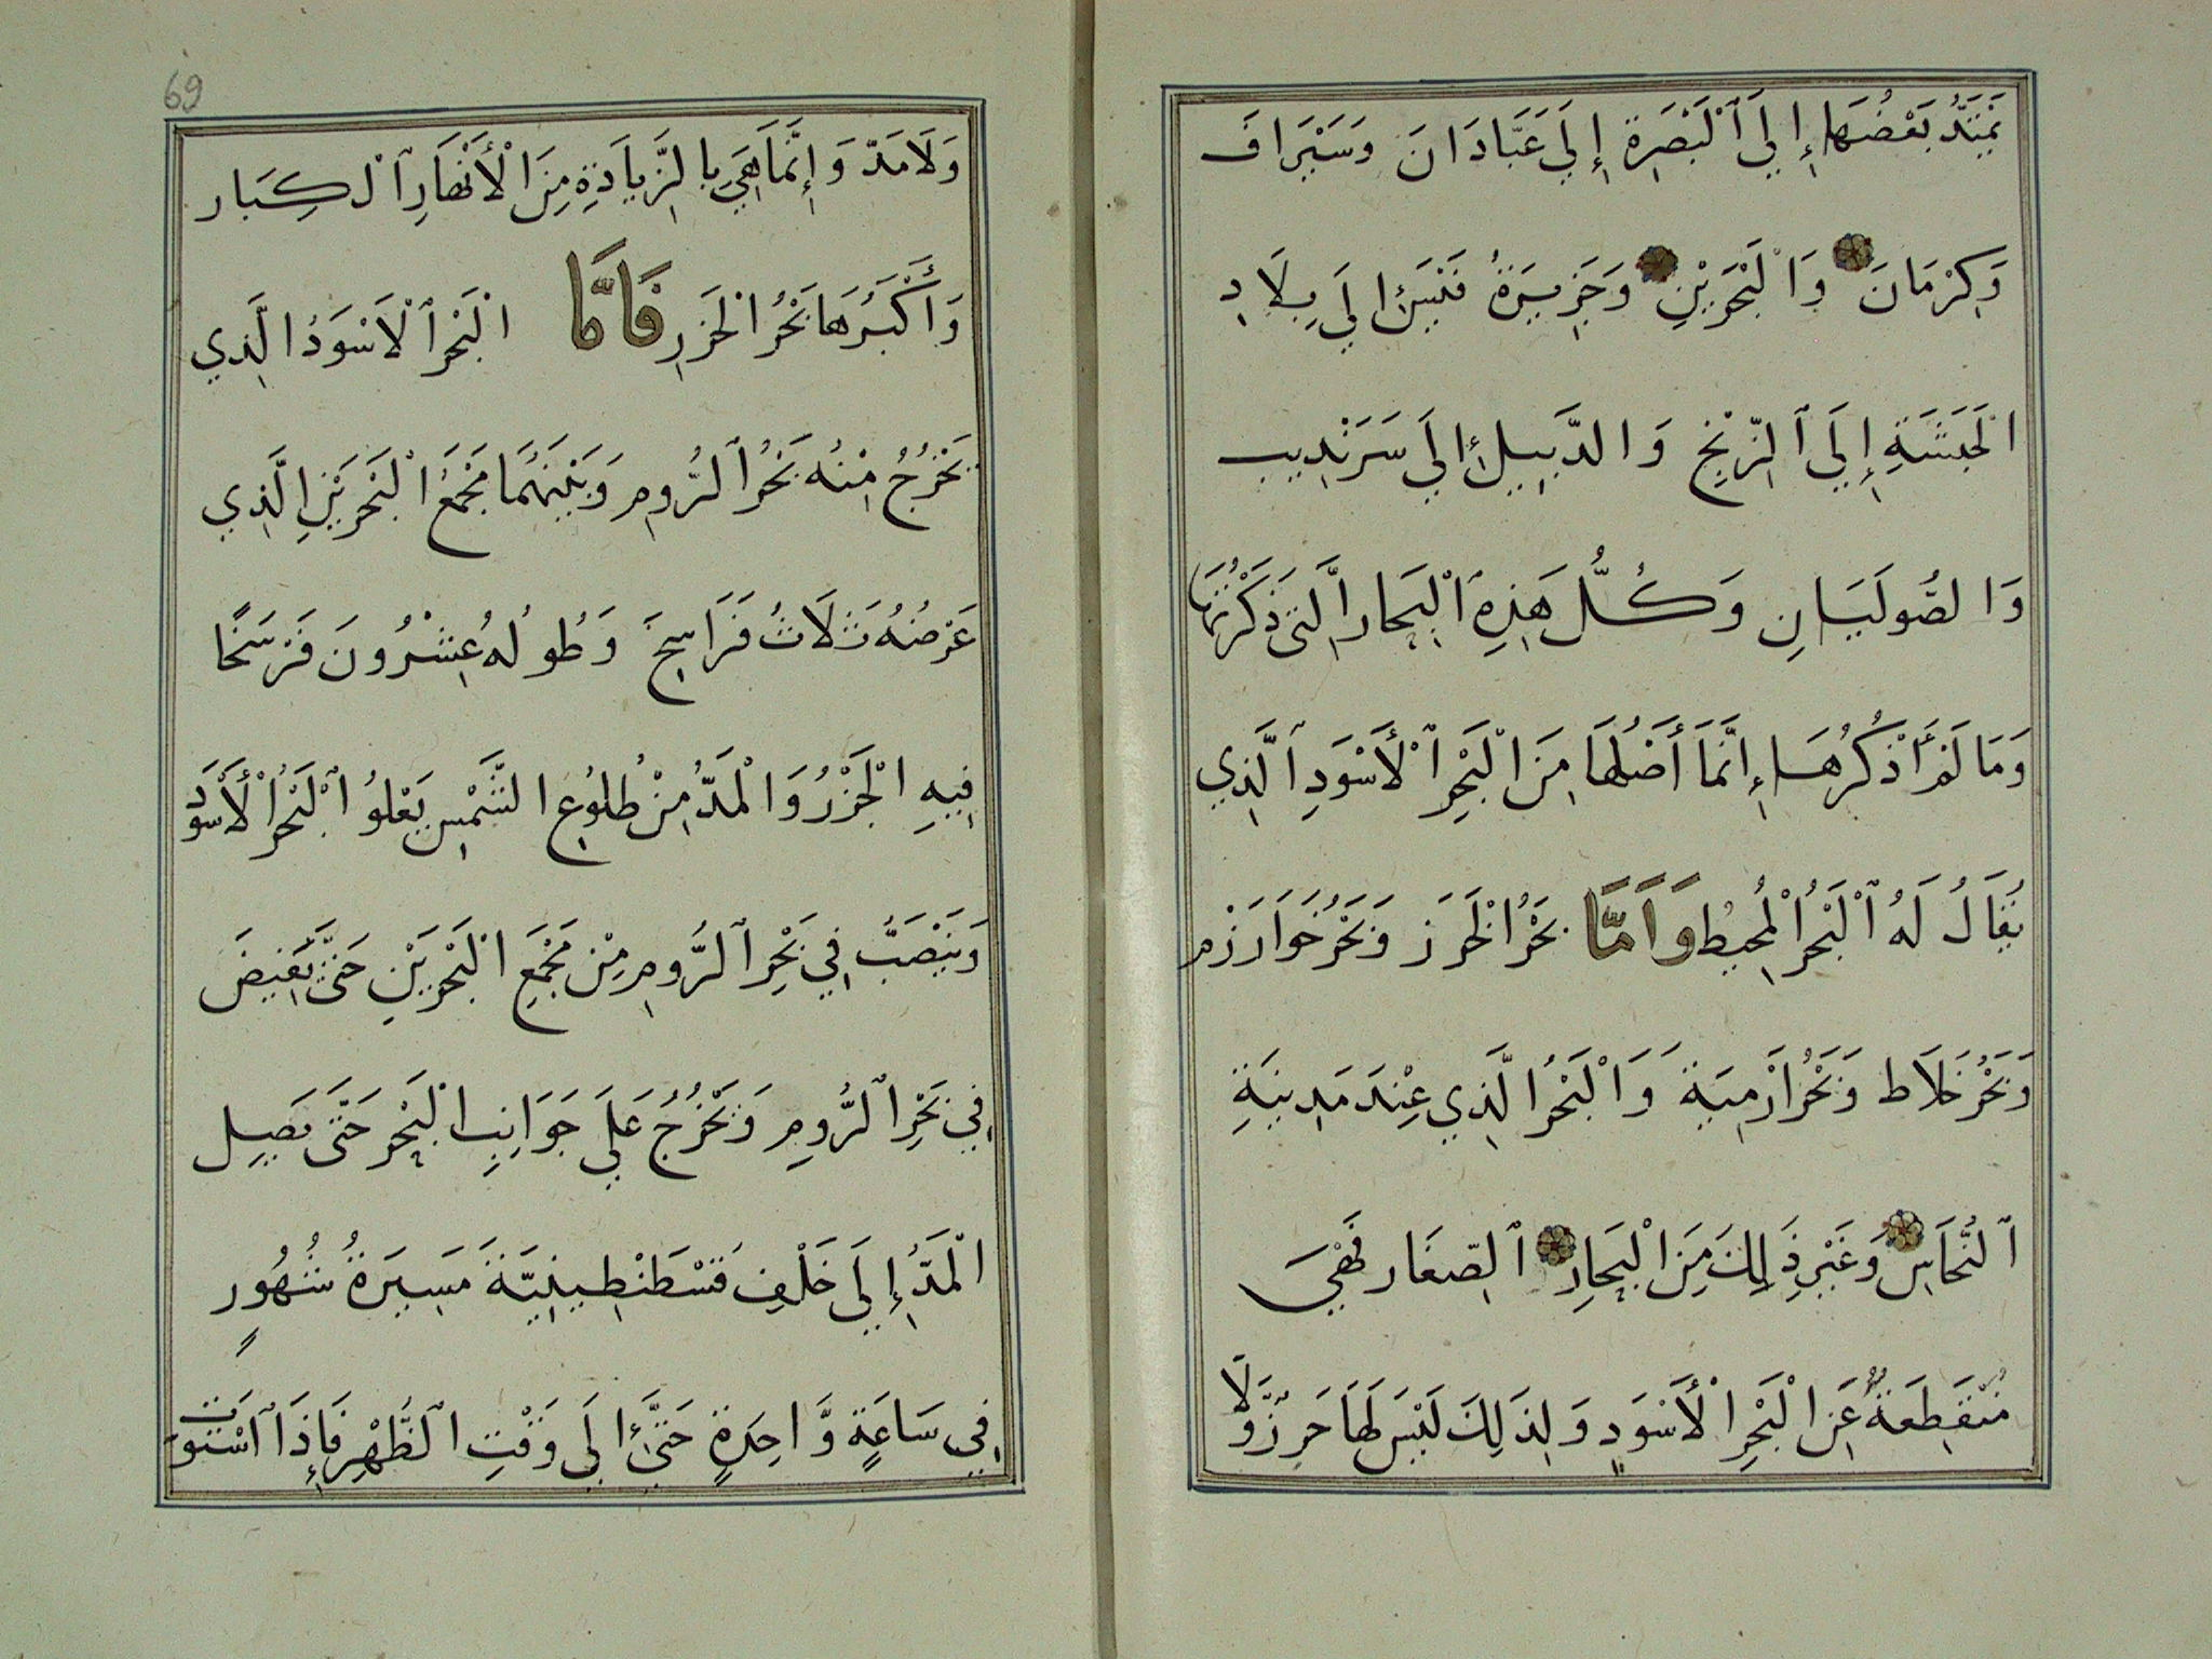 يَمْتَدُّ بَعْضُهَا إِلَي ٱلْبَصَرِةِ إِلَي عَبَّادَانَ وَسَيْرَافَ
وَكِرْمَانَ وَالْبَحْرَيْنِ وَجَزِيرَةُ قَيْسَ إِلَي بِلَادِ
الْحَبَشَةِ إِلَي ٱلزِّنْجِ وَالدَّيْبِيلِ إِلَي سَرَنْدِيبِ
وَالصُّولَيَانِ وَكُلُّ هَذِهِ ٱلْبِحَارِ الَّتِي ذَكَرْتُهَا
وَمَا لَمْ أَذْكُرُهَا إِنَّمَا أَصْلُهَا مِنَ الْبَحْرِ ٱلْأَسْوَدِ ٱلَّذِي
يُقَالُ لَهُ ٱلْبَحْرُ الْمُحِيطُ وَاَمَّا بَحْرُ الْخَزَرَ وَبَحْرُ خَوَارَزْم
وَبَحْرُ خَلَاط وَبَحْرُ اَرْمِيَةَ وَالْبَحْرُ الَّذِي عِنْدَ مَدِينَةِ
ٱلنُّحَاسِ وَغَيْرِ ذَلِكَ مِنَ الْبِحَارِ ٱلصِّغَار فَهْيَ
مُنْقَطِعَةٌ عَنِ الْبَحْرِ الْأَسْوَدِ وَلِذَلِكَ لَيْسَ لَهَا جَزِرٌ وَلَا
69
وَلَا مَدّ وَإِنَّمَا هِيَ بِالزِّيَادَةِ مِنَ الْأَنْهَارِ ٱلْكِبَار
وَأَكْبَرُهَا بَحْرُ الْخَزَرِ فَامَّا الْبَحْر ٱلْأَسْوَدُ الَّذِي
يَخْرُجُ مِنْهُ بَحْرُ ٱلرُّومِ وَبَيْنَهُمَا مَجْمَعُ الْبَحْرَيْنِ الَّذِي
عَرْضُهُ ثَلَاثُ فَرَاسِخَ وَطُولُهُ عِشْرُونَ فَرْسَخًا
فِيهِ الْجَزْرُ وَالْمَدُّ مِنْ طُلُوعِ الشَّمْسِ يَعْلُوُ ٱلْبَحْرُ الْأَسْوَد
وَيَنْصَبُّ فِي بَحْرِ ٱلرُّومِ مِنْ مَجْمَعِ الْبَحْرَيْنِ حَتَّى يَفِيضَ
فِي بَحْرِ ٱلرُّومِ وَيَخْرُجُ عَلَي جَوَانِبِ الْبَحِرِ حَتَّى يَصِل
الْمَدُّ إِلَي خَلْفِ قُسْطَنْطِينِيَّةَ مَسِيرَةُ شُهُورٍ
فِي سَاعَةٍ وَّاحِدَةٍ حَتَّى إِلَي وَقْتِ الظُّهْرِ فَإِذَا ٱسْتَوَت